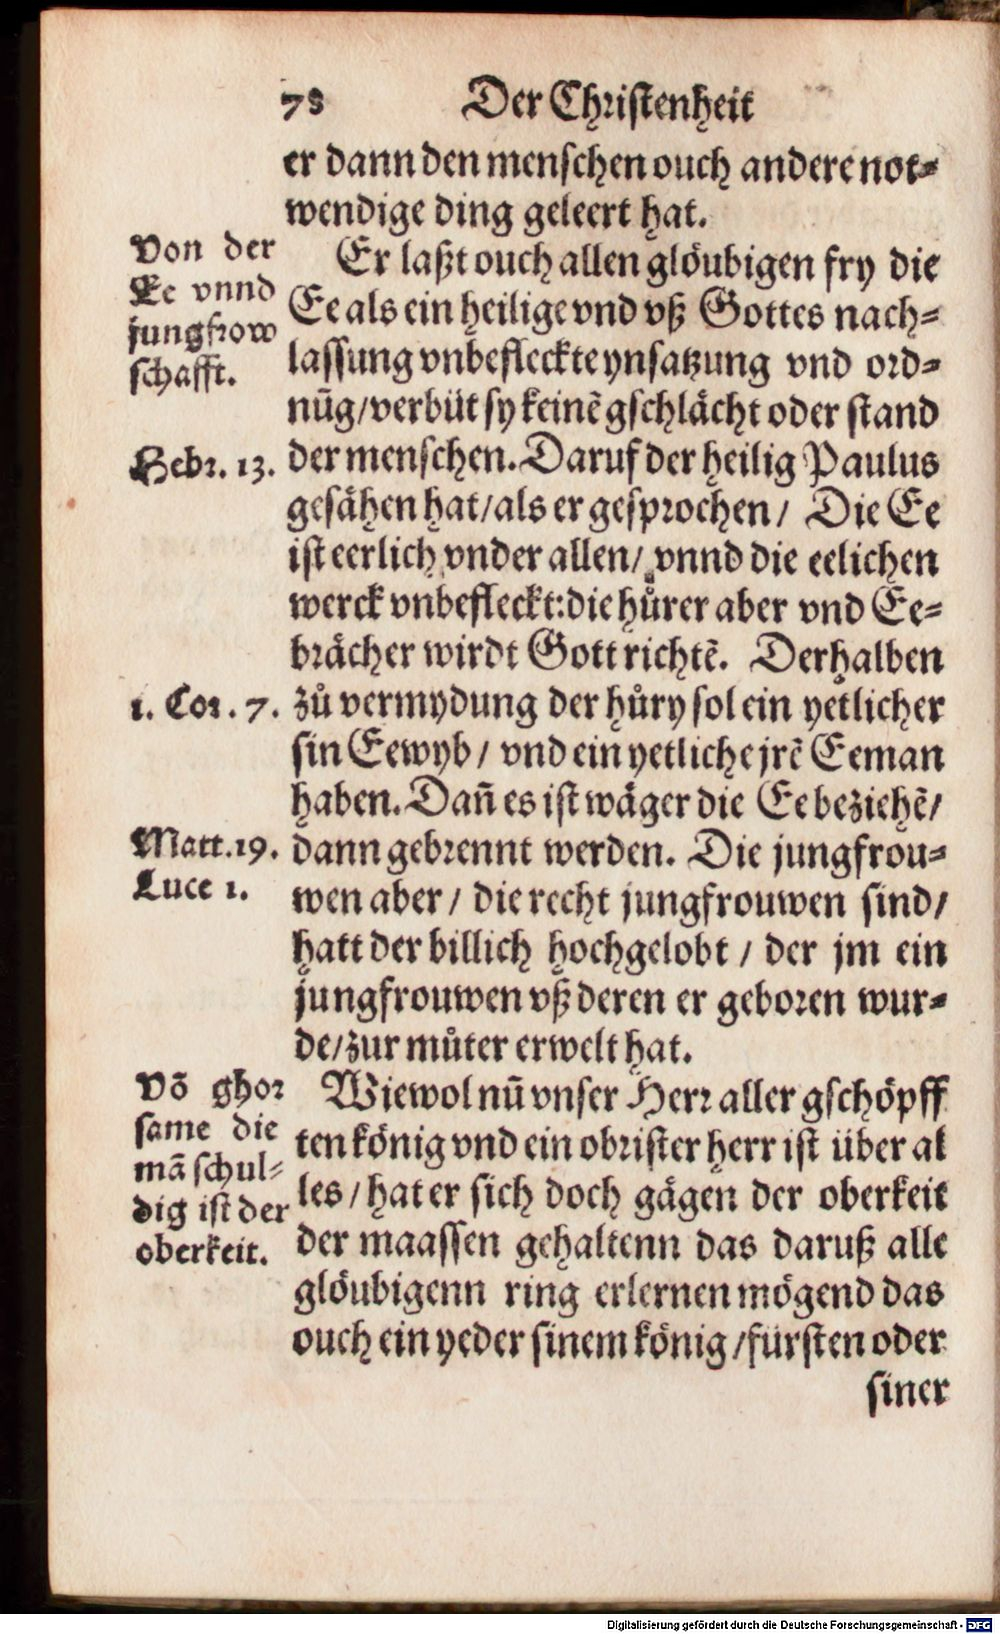 78 Der Christenheit
er dann den menschen ouch andere not-
wendige ding geleert hat.
Von der
Ee vnnd
jungfrow
schafft.
Er laßt ouch allen glöubigen fry die
Ee als ein heilige vnd vß Gottes nach-
lassung vnbefleckte ynsatzung vnd ord-
nūg/verbüt sy keinē gschlächt oder stand
Hebr. 13.
der menschen. Daruf der heilig Paulus
gesähen hat/als er gesprochen/ Die Ee
ist eerlich vnder allen/ vnnd die eelichen
werck vnbefleckt: die hůrer aber vnd Ee-
brächer wirdt Gott richtē. Derhalben
1. Cor. 7.
zů vermydung der hůry sol ein yetlicher
sin Eewyb/ vnd ein yetliche jrē Eeman
haben. Dañ es ist wäger die Ee beziehē/
Matt. 19.
Luce 1.
dann gebrennt werden. Die jungfrou-
wen aber/ die recht jungfrouwen sind/
hatt der billich hochgelobt/ der jm ein
jungfrouwen vß deren er geboren wur-
de/zur můter erwelt hat.
Vō ghor
same die
mā schul-
dig ist der
oberkeit.
Wiewol nū vnser Herr aller gschöpff
ten könig vnd ein obrister herr ist über al
les/ hat er sich doch gägen der oberkeit
der maassen gehaltenn das daruß alle
glöubigenn ring erlernen mögend das
ouch ein yeder sinem könig/fürsten oder
siner
Digitalisierung gefördert durch die Deutsche Forschungsgemeinschaft - DFG